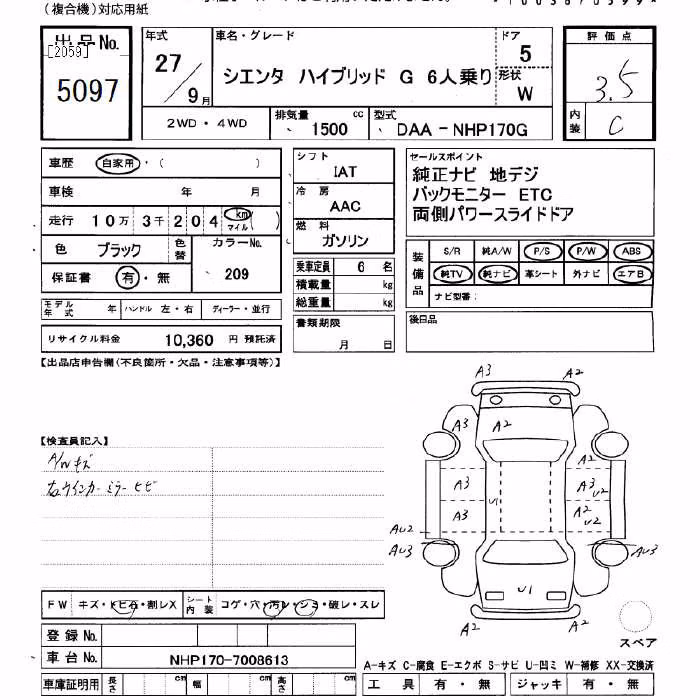 (複合機)対応用紙
出品No. 年式 車名・グレード ドア 評価点
[2059]
5097
27/9月 シエンタ ハイブリッド G 6人乗り 5
形状 W
3.5
2WD・4WD 排気量 1500 cc 型式 DAA-NHP170G
内装 C
車歴 自家用・( )
車検 年 月
走行 10万 3千 2 0 4 km マイル ( )
色 ブラック 色替 カラーNo. 209
保証書 有・無
モデル年式 年 ハンドル 左・右 ディーラー・並行
リサイクル料金 10,360 円 預託済
シフト IAT
冷房 AAC
燃料 ガソリン
乗車定員 6 名
積載量 kg
総重量 kg
書類期限 月 日
セールスポイント
純正ナビ 地デジ
バックモニター ETC
両側パワースライドドア
装備品 S/R 純A/W P/S P/W ABS
純TV 純ナビ 革シート 外ナビ エアB
ナビ型番:
後日品
【出品店申告欄(不良箇所・欠品・注意事項等)】
【検査員記入】
A/Wキズ
右ウインカーミラーヒビ
A3 A2
A3 A2
A3 A3 U2
U1
A3 A2 U2
AU2
AU3 AU3
U1
A2 A2
スペア
FW キズ・トビ石・割レX シート内装 コゲ・穴・汚レ・シミ・破レ・スレ
登録No.
車台No. NHP170-7008613
車庫証明用 長さ cm 幅 cm 高さ cm
A-キズ C-腐食 E-エクボ S-サビ U-凹ミ W-補修 XX-交換済
工具 有・無 ジャッキ 有・無